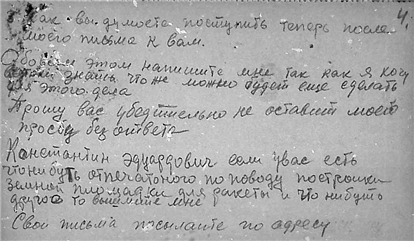 4.
Как вы думаете поступить теперь после
моего письма к вам.
Обо всём этом напишите мне так как я хочу
знать что же можно будет еще сделать
для этого дела
Прошу вас убедительно не оставит моего
просбу без ответа
Константин Эдуардович если увас есть
чтонибуть отпечатоного по поводу постройки
Земной площадки для ракеты и что нибуть
другое то вышлите мне
Свои письма посылайте по адресу